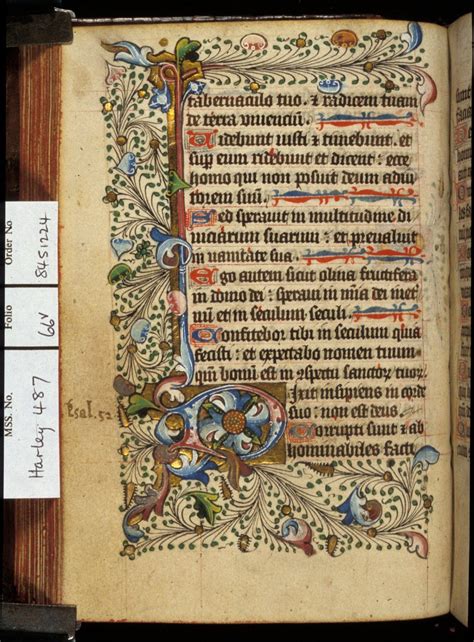 tabernaculo tuo. & radicem tuam
de terra viuenciū.
Uidebunt iusti & timebunt. et
sup eum ridebunt et dicent: ecce
homo qui non posuit deum adiu
torem suū.
Sed sperauit in multitudine di
uiciarum suarum: et preualuit
in vanitate sua.
Ego autem sicut oliua fructifera
in domo dei: speraui in mīa dei
in eternū et in seculum seculi.
Confitebor tibi in seculum quia
fecisti: et expectabo nomen tuum
qm̄ bonū est in conspectu sanctor tuor
Dixit insipiens in corde
suo: non est deus.
Corrupti sunt & ab
hominabiles facti
Psal. 52
Order No
8451224
Folio
66v
MSS. No.
Harley 487